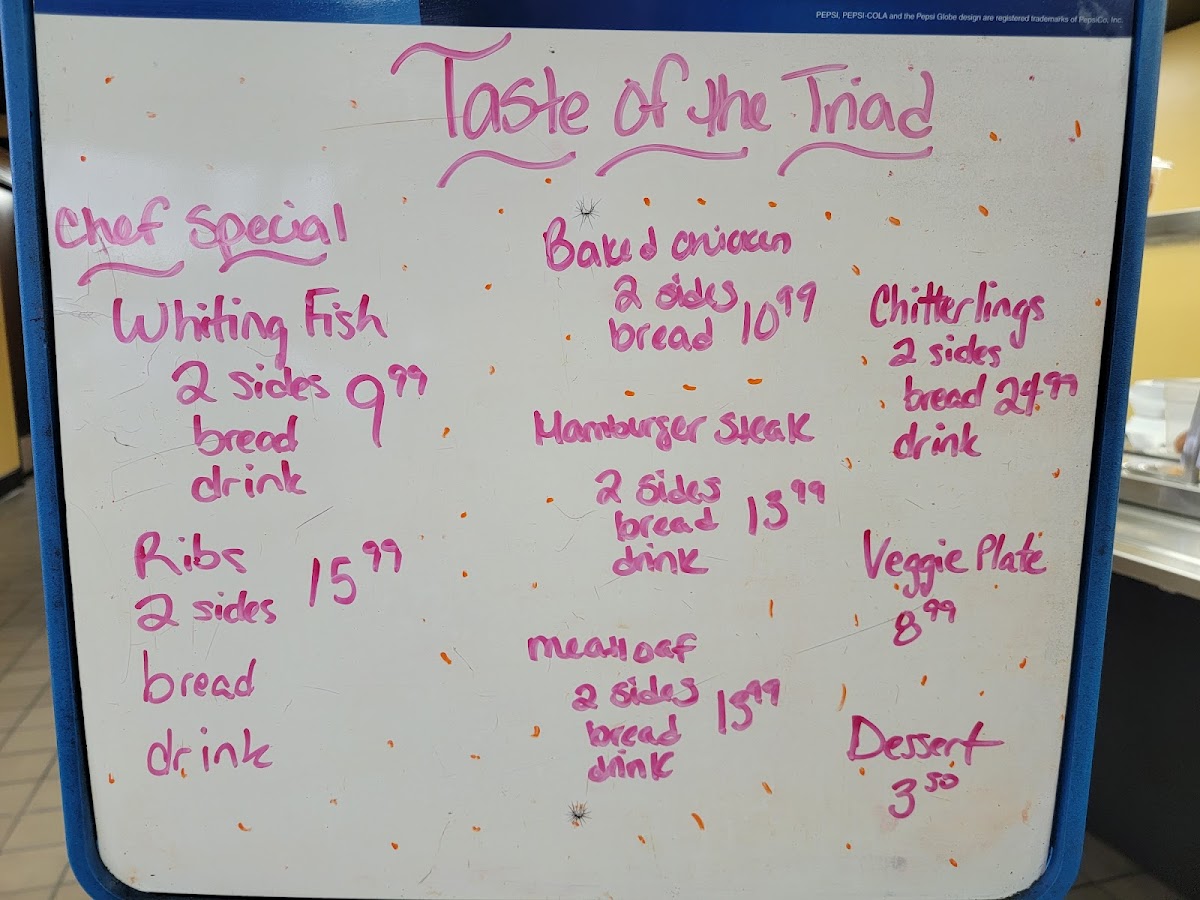 PEPSI, PEPSI-COLA and the Pepsi Globe design are registered trademarks of PepsiCo, Inc.
Taste of the Triad
Chef Special
Whiting Fish
2 sides 9.99
bread
drink
Ribs 15.99
2 sides
bread
drink
Baked chicken
2 sides
bread 10.99
Hamburger Steak
2 sides
bread 13.99
drink
meatloaf
2 sides 13.99
bread
drink
Chitterlings
2 sides
bread 24.99
drink
Veggie Plate
8.99
Dessert
3.50